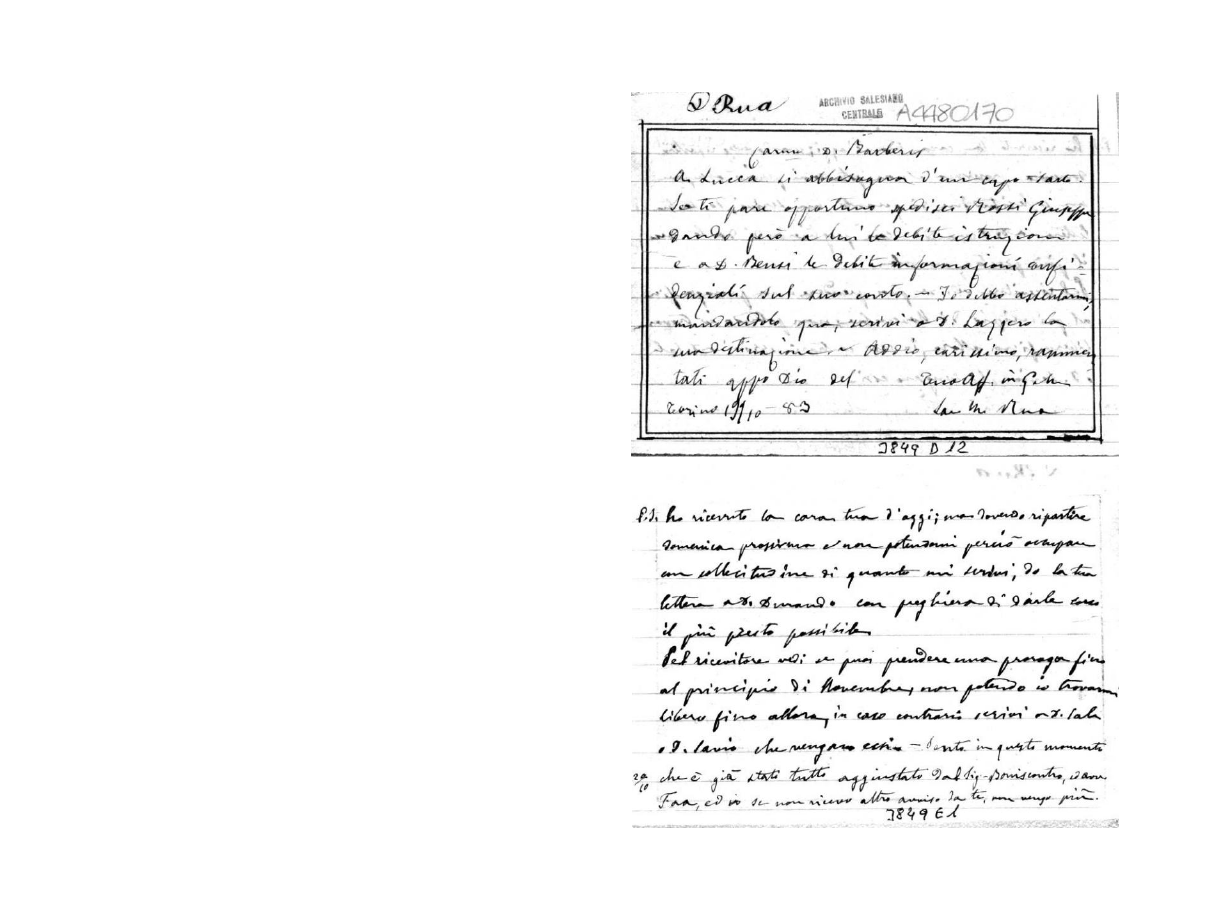 D Rua
ARCHIVIO SALESIANO
CENTRALE
A4480170
Caro D. Barberis
A Lucca si abbisogna d'un capo sarto.
Se ti pare opportuno spedisci Rossi Giuseppe
dando però a lui le debite istruzioni
e a D. Bensi le debite informazioni confi-
denziali sul suo conto. — Io debbo assentarmi,
mandandolo qua, scrivi a D. Lazzero la
sua destinazione. — Addio, carissimo, rammen
tati appo Dio del Tuo Aff. in G.
Torino 19/10 - 83 Sac M. Rua
J849 D 12
P.S. Ho ricevuto la cara tua d'oggi; ma dovendo ripartire
domenica prossima e non potendomi perciò occupare
con sollecitudine di quanto mi scrivi, do la tua
lettera a D. Durando con preghiera di darle corso
il più presto possibile.
Pel ricevitore vedi se puoi prendere una proroga fino
al principio di Novembre, non potendo io trovarmi
libero fino allora, in caso contrario scrivi a D. Sala
o D. Savio che vengano essi — Sento in questo momento
20/10 che è già stato tutto aggiustato dal Sig. Boniscontro,
Faa, ed io se non ricevo altro avviso da te, non vengo più.
J849 E1